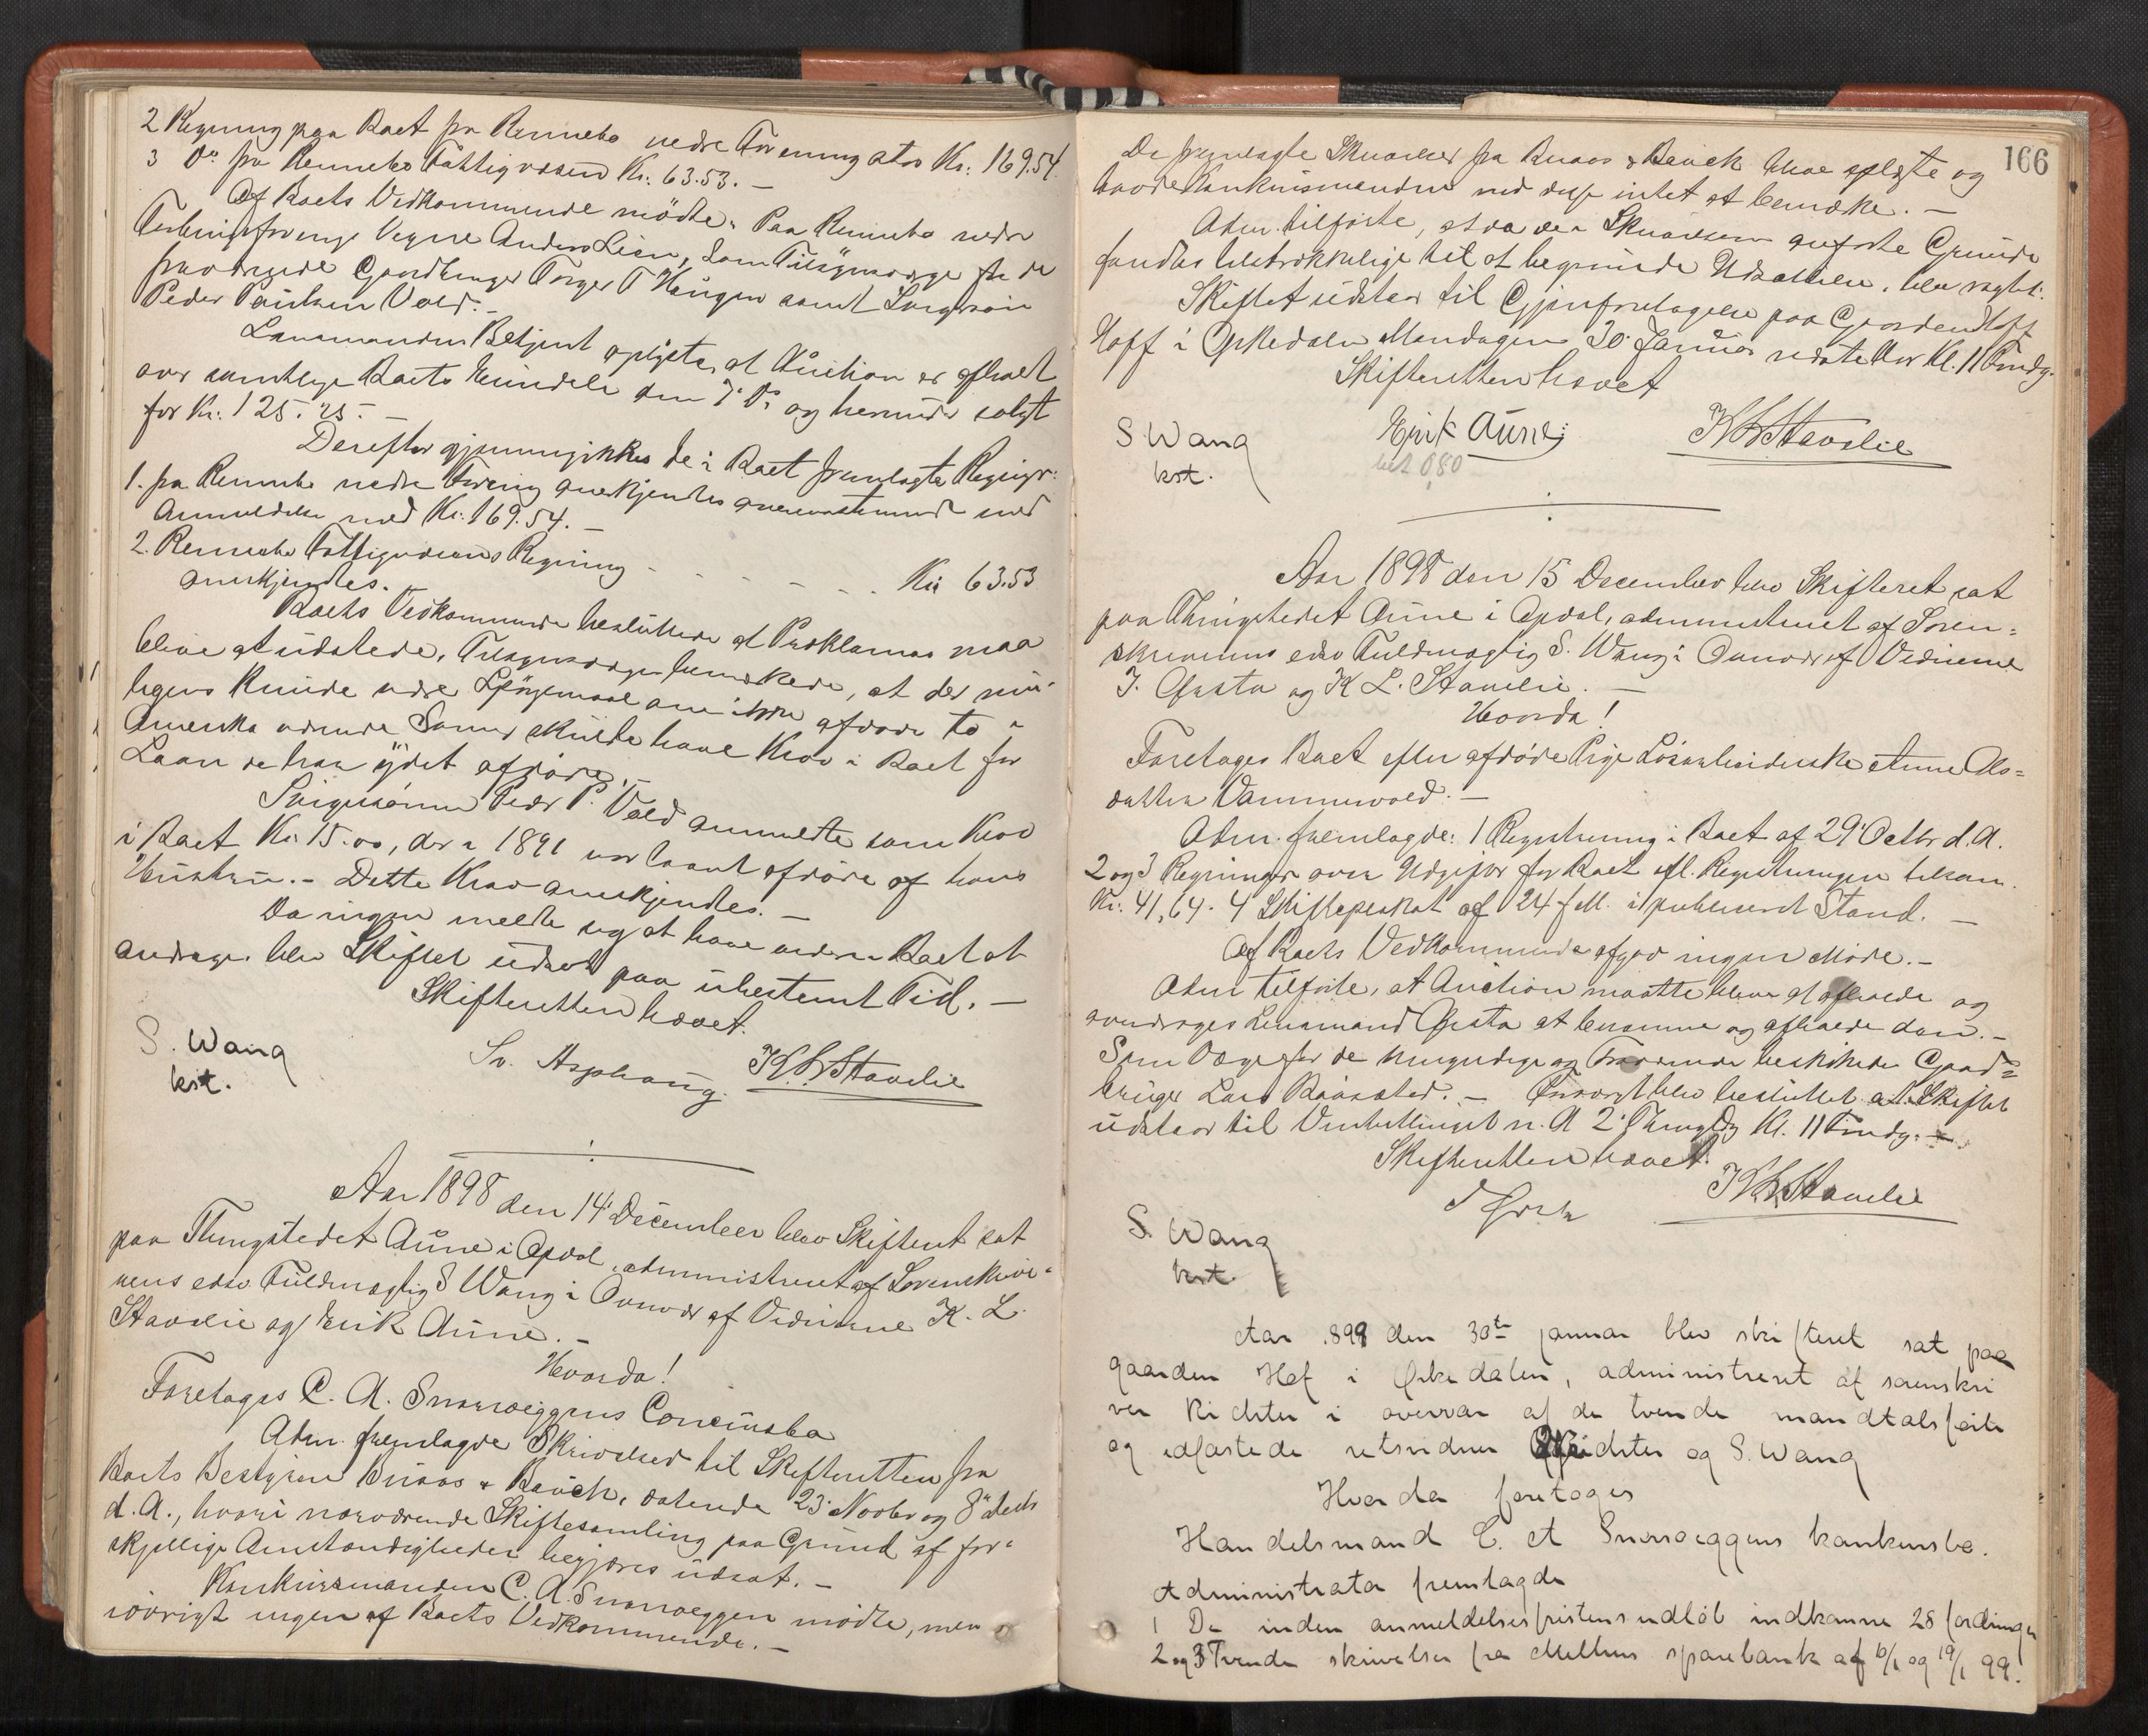 2 Regning paa Boet fra Rennebo nedre Forening stor Kr: 169.54.
3 Do fra Rennebo Fattigvæsen Kr: 63.53. –
Af Boets Vedkommende mödte: Paa Rennebo nedre
Forenings Vegne Anders Lien, som Tilsynsværge for de
fraværende Gaardbruger Torger T Haugen samt Svigersön
Peder Paulsen Vold. –
Lensmandens Betjent oplyste, at Auction er afholdt
over samtlige Boets Eiendele den 7' ds og herunder solgt
for Kr: 125.25. –
Derefter gjennemgikkes de i Boet fremlagte Regngr:
1. fra Rennebo nedre Forening anerkjendes overensstemmende med
Anmeldelse med Kr: 169.54. –
2. Rennebo Fattigvæsens Regning - - - - - Kr: 63.53
anerkjendtes.
Boets Vedkommende besluttede at Proklama maa
blive at udstede. Tilsynsværgen bemærkede, at der mu-
ligens kunde være Spörgsmaal om ikke afdöde to i
Amerika værende Sönner skulde have Krav i Boet for
Laan de har ydet afdöde. –
Svigersönnen Peder P. Vold anmeldte som Krav
i Boet Kr. 15.00, der i 1891 var laant afdöde af hans
Hustru. – Dette Krav anerkjendtes. –
Da ingen meldte sig at have videre Boet at
andrage, blev Skiftet udsat paa ubestemt Tid. –
Skifteretten hævet.
S. Wang
kst.
Sv. Asphaug. K. L. Stavelie
Aar 1898 den 14' December blev Skifteret sat
paa Thingstedet Aune i Opdal, administreret af Sorenskrive-
rens edsv Fuldmægtig S Wang i Overvær af Vidnerne K. L.
Stavelie og Erik Aune. –
Hvorda!
Foretoges C. A. Snoveggens Concursbo
Adm. fremlagde Skrivelser til Skifteretten fra
Boets Bestyrere Buaas & Bauck, daterede 23' Novbr og 8de dects
d. A., hvori nærværende Skiftesamling paa Grund af for-
skjellige Omstændigheder begjæres udsat. –
Konkursmanden C. A. Snoveggen mödte, men
iövrigt ingen af Boets Vedkommende. –
166
De fremlagte Skrivelser fra Buaas & Bauck blev oplæste og
havde Konkursmanden ved disse intet at bemærke. –
Adm. tilförte, at da de i Skrivelsen anförte Grunde
fandtes tilstrækkelige til at begrunde Udsættelse, blev vedtt:
Skiftet udstaar til Gjenforetagelse paa Gaarden
Hoff i Orkedalen Mandagen 30' Januar næste Aar Kl. 11 Fmdg.
Skifteretten hævet
S Wang
kst.
Erik Aune
bet 0,80
K L Stavelie
Aar 1898 den 15 December blev Skifteret sat
paa Thingstedet Aune i Opdal, administreret af Soren-
skriverens edsv Fuldmægtig S. Wang i Overvær af Vidnerne
J. Ørsta og K L. Stavelie. –
Hvorda!
Foretoges Boet efter afdöde Pige Lösarbeiderske Anne Ols-
datter Vammervold. –
Adm. fremlagde: 1 Registrering i Boet af 29' Octbr d. A.
2 og 3 Regninger over Udgifter for Boet efl. Registreringen tilsam.
Kr: 41,64. 4 Skifteplakat af 24 f M. i publiceret Stand. –
Af Boets Vedkommende afgav ingen Möde. –
Adm tilförte, at Auction maatte blive at afholde og
anmodes Lensmand Ørsta at beramme og afholde den. –
Som Værge for de umyndige og Fraværende beskikkedes Gaard-
bruger Lars Baarsted. – Forövrigt blev besluttet at Skiftet
udstaar til Vintertinget n. A 2' Thingdg Kl. 11 Fmdg. –
Skifteretten hævet.
S. Wang
kst.
J Ørsta
K L Stavelie
Aar 1899 den 30te januar blev skifteret sat paa
gaarden Hof i Ørkedalen, administreret af sorenskri
ver Richter i overvær af de tvende mandtalsförte
og edfæstede retsvidner Richter og S. Wang
Hvorda foretoges
Handelsmand C. A Snoveggens konkursbo.
Administrator fremlagde
1 De inden anmeldelsesfristens udløb indkomne 28 fordringer
2 og 3 Tvende skrivelser fra Melhus sparebank af 10/1 og 19/1 99.